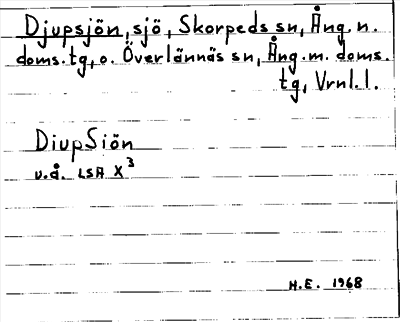 Djupsjön, sjö, Skorpeds sn, Ång. n.
doms. tg, o. Överlännäs sn, Ång. m. doms.
tg, Vrnl. l.
DiupSiön
u.å. LSA X³
H.E. 1968